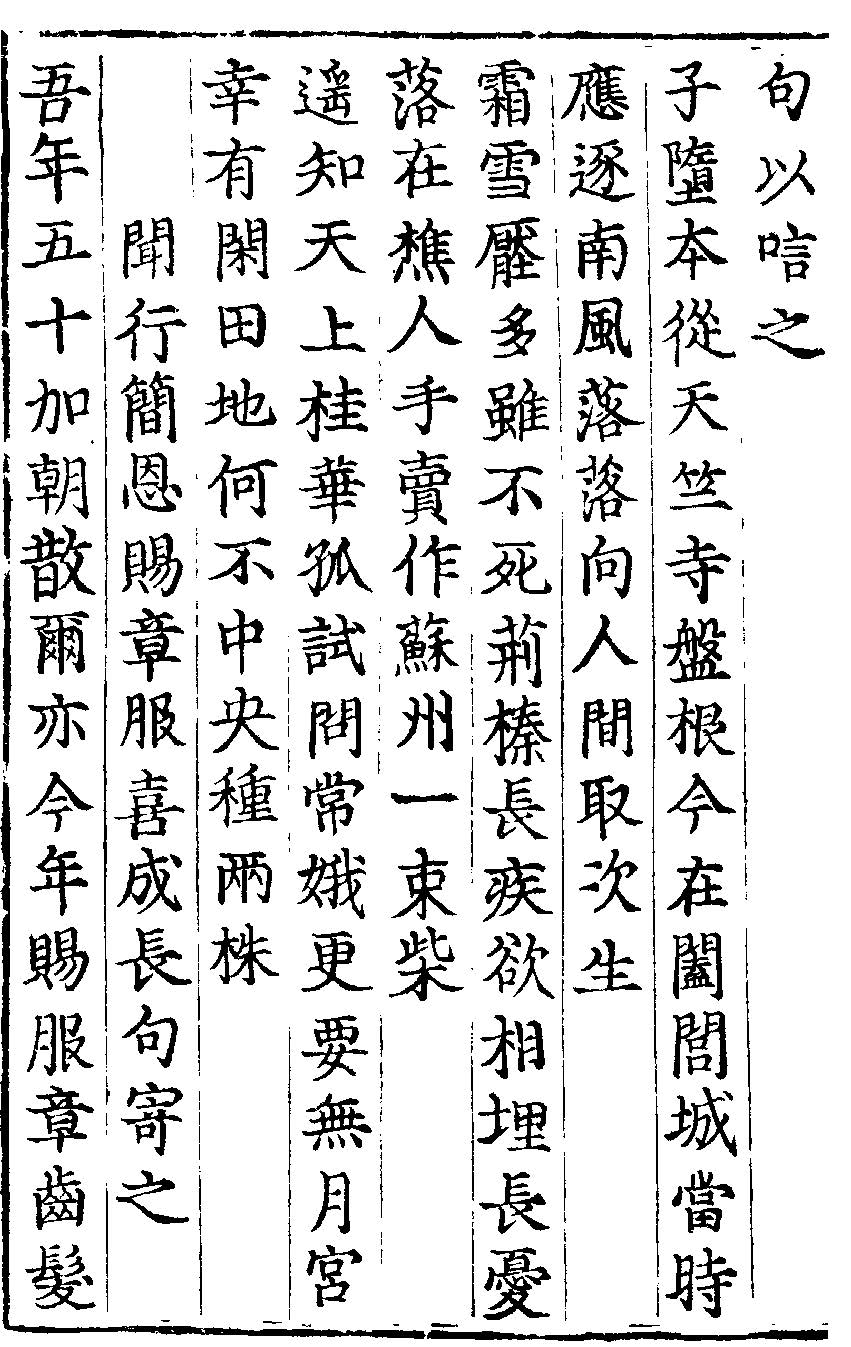 句以唁之
子墮本從天竺寺盤根今在闔閭城當時
應逐南風落落向人間取次生
霜雪壓多雖不死荊榛長疾欲相埋長憂
落在樵人手賣作蘇州一束柴
遥知天上桂華孤試問常娥更要無月宮
幸有閑田地何不中央種兩株
聞行簡恩賜章服喜成長句寄之
吾年五十加朝散爾亦今年賜服章齒髮